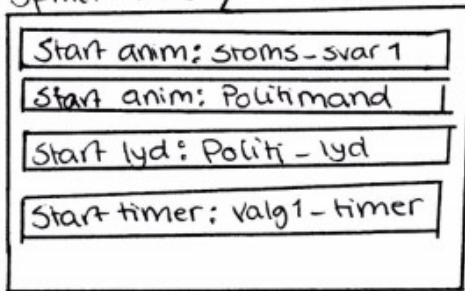 Start anim: stoms-svar 1
Start anim: Politimand
Start lyd: Politi-lyd
Start timer: valg1-timer